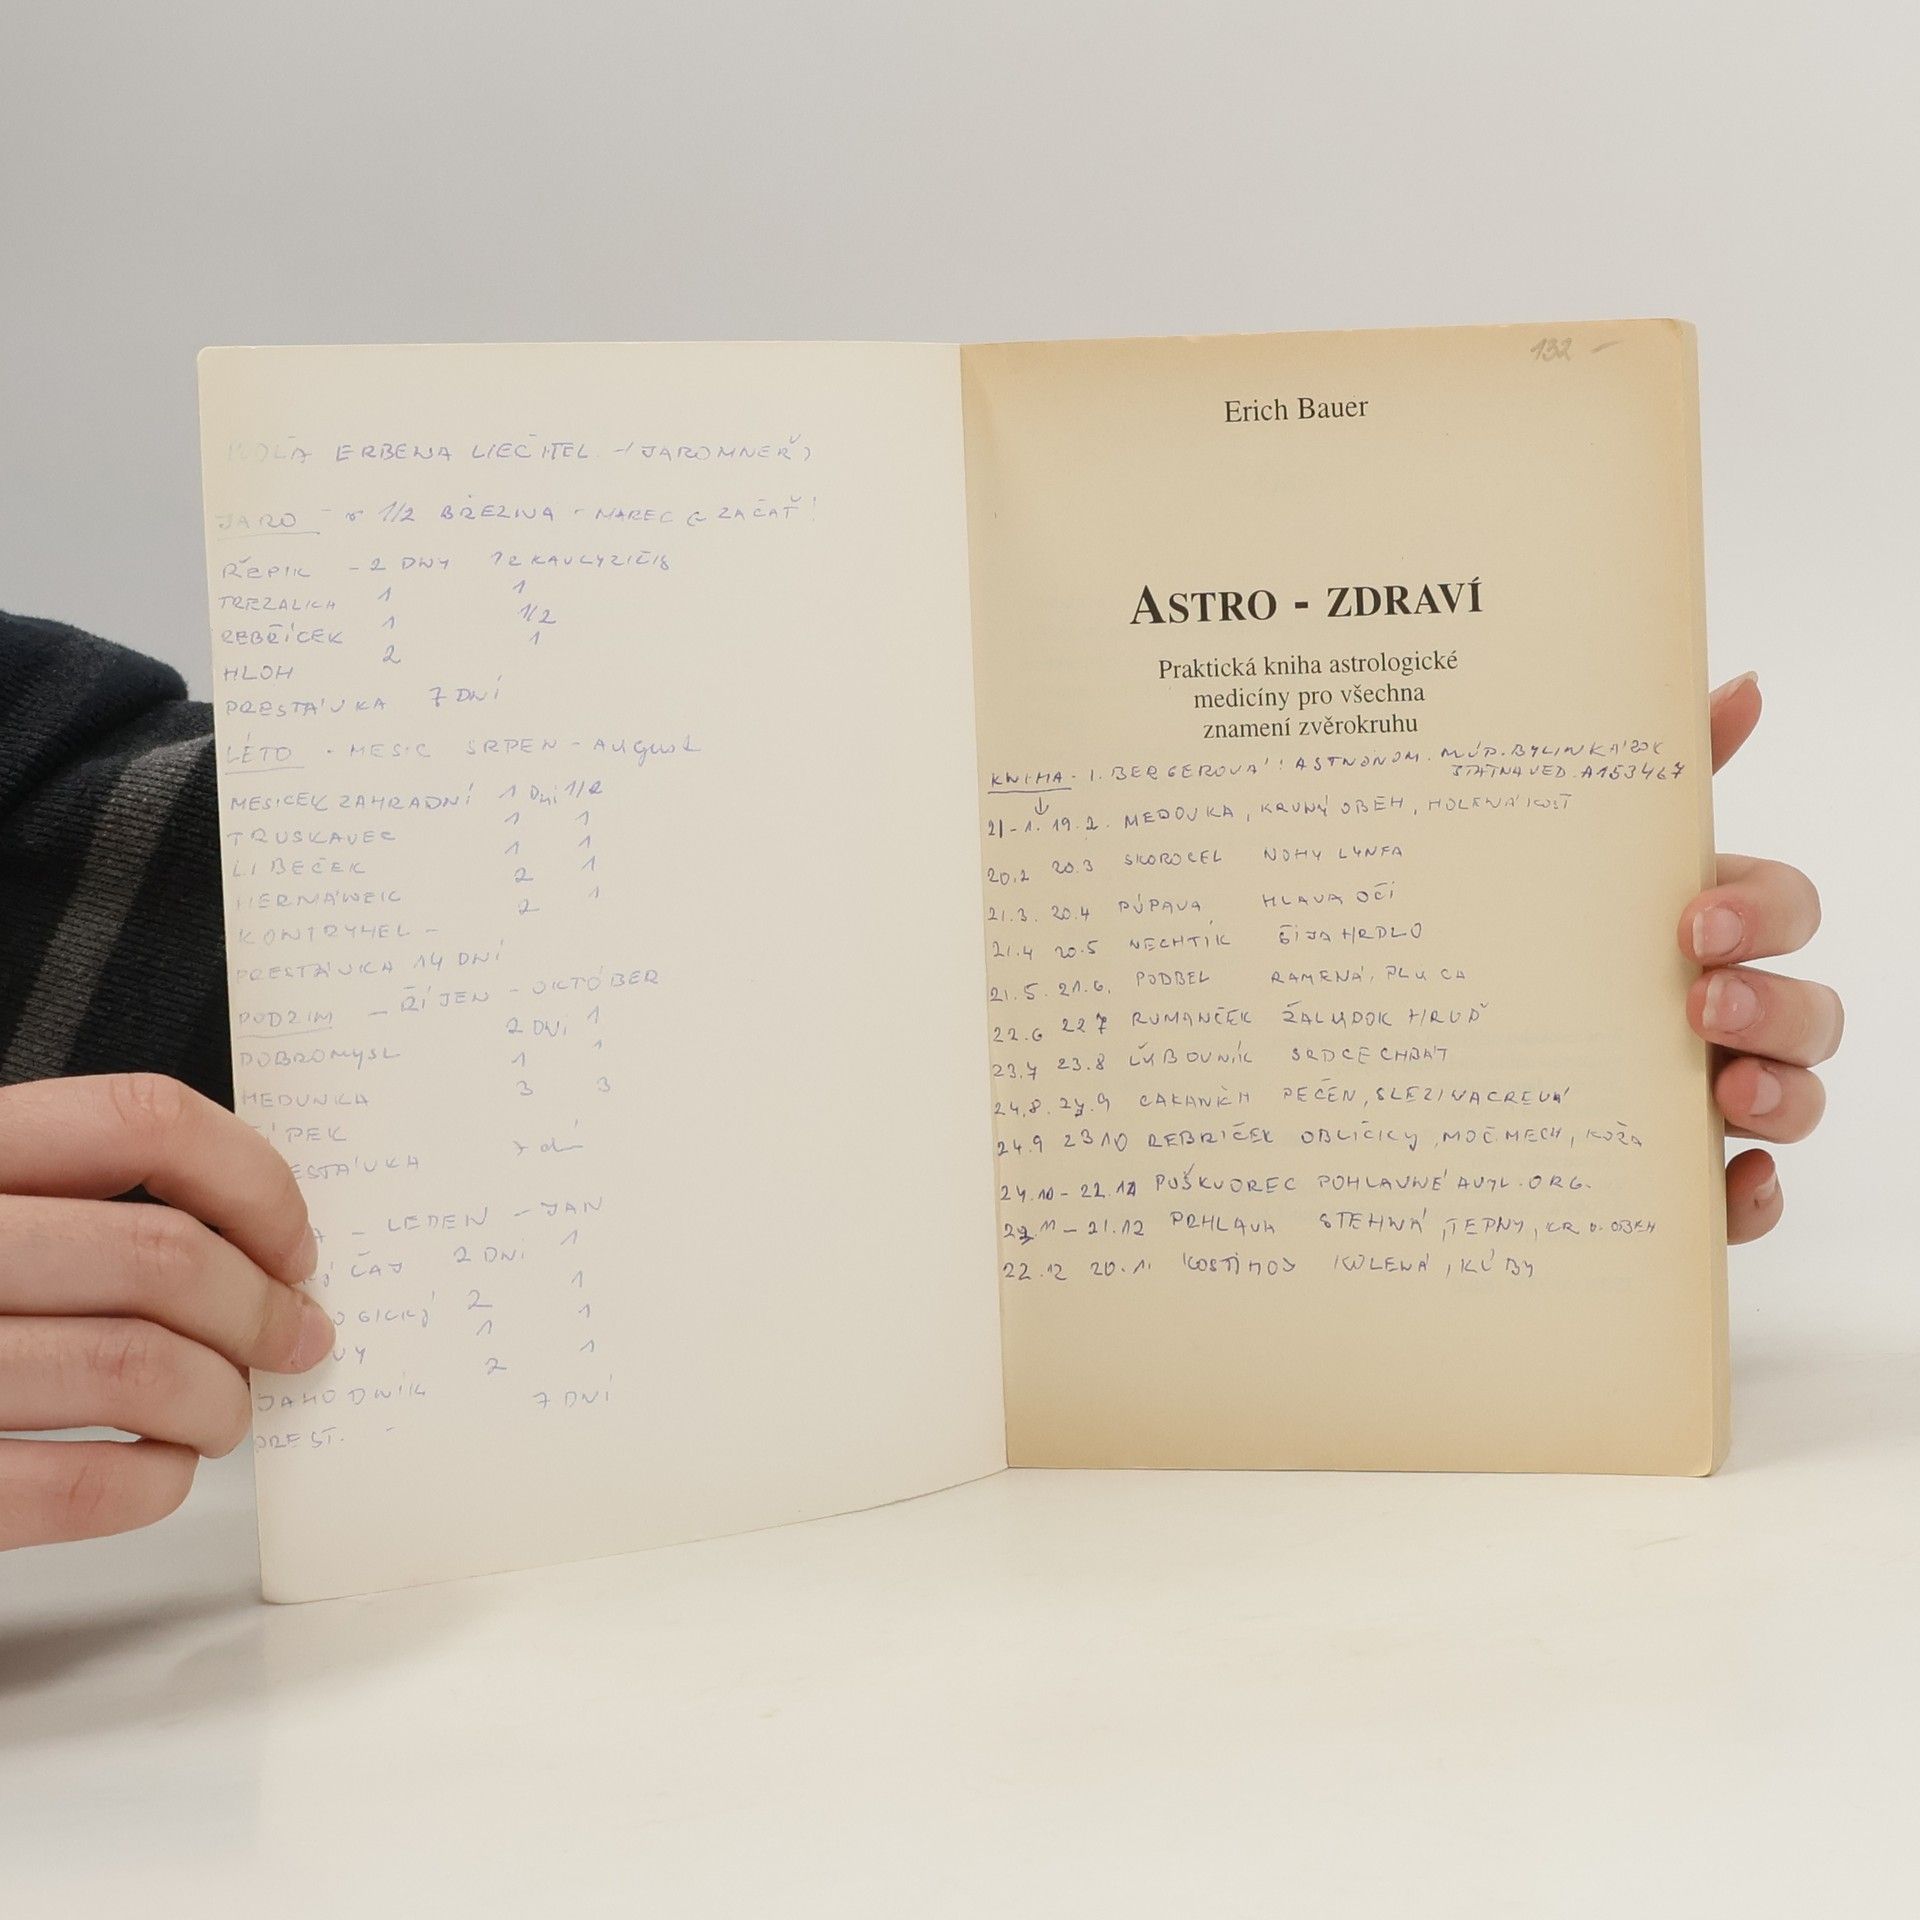 ERBENA LIEČITEL - (JAROMNEŘ)
JARO - 1/2 BŘEZINA - MAREC ZAČAŤ!
ŘEPIK - 2 DNY
TREZALKA 1 1
REBŘÍCEK 1 1/2
HLOH 2 1
PRESTÁVKA 7 DNÍ
LÉTO - MESIC SRPEN - AUgust
MESICEK ZAHRADNÍ 1 Dni 1/2
TRUSKAVEC 1 1
LIBEČEK 1 1
HERMÁNEK 2 1
KONTRYHEL - 2 1
PRESTÁVKA 14 DNÍ
PODZIM - ŘÍJEN - OKTÓBER
DOBROMYSL 2 DNi 1
MEDUNKA 1 1
ÍPEK 3 3
ESTÁVKA 7
- LEDEN - JAN
ČAJ 2 DNi 1
2 1
1 1
JAHODNÍK 2 1
PREST. - 7 DNÍ
132 -
Erich Bauer
ASTRO - ZDRAVÍ
Praktická kniha astrologické
medicíny pro všechna
znamení zvěrokruhu
KNIHA - I. BERGEROVÁ: ASTNONOM.
A153467
21-1. 19.2. MEDOVKA, KRVNÝ OBEH, HOLENÁ KOSŤ
20.2 20.3 SKOROCEL NOHY LYNFA
21.3. 20.4 PÚPAVA HLAVA OČÍ
21.4 20.5 NECHTÍK ŠIJA HRDLO
21.5. 21.6. PODBEL RAMENÁ, PLUCA
22.6 22 7 RUMANČEK ŽALUDOK HRUĎ
23.7 23.8 ĽUBOVNÍK SRDCE CHBÁT
24.8. 24.9 CAKANKH PEČEN, SLEZINA CREVÁ
24.9 23 10 REBRÍČEK OBLIČKY, MOČ.MECH, KOŽA
24.10 - 22.11 PUŠKVOREC POHLAVNÉ ORG.
11 - 21.12 PRHLAVA STEHNÁ, TEPNY, KRV.OBEH
22.12 20.1. KOSTIHOJ KOLENÁ, KĹBY